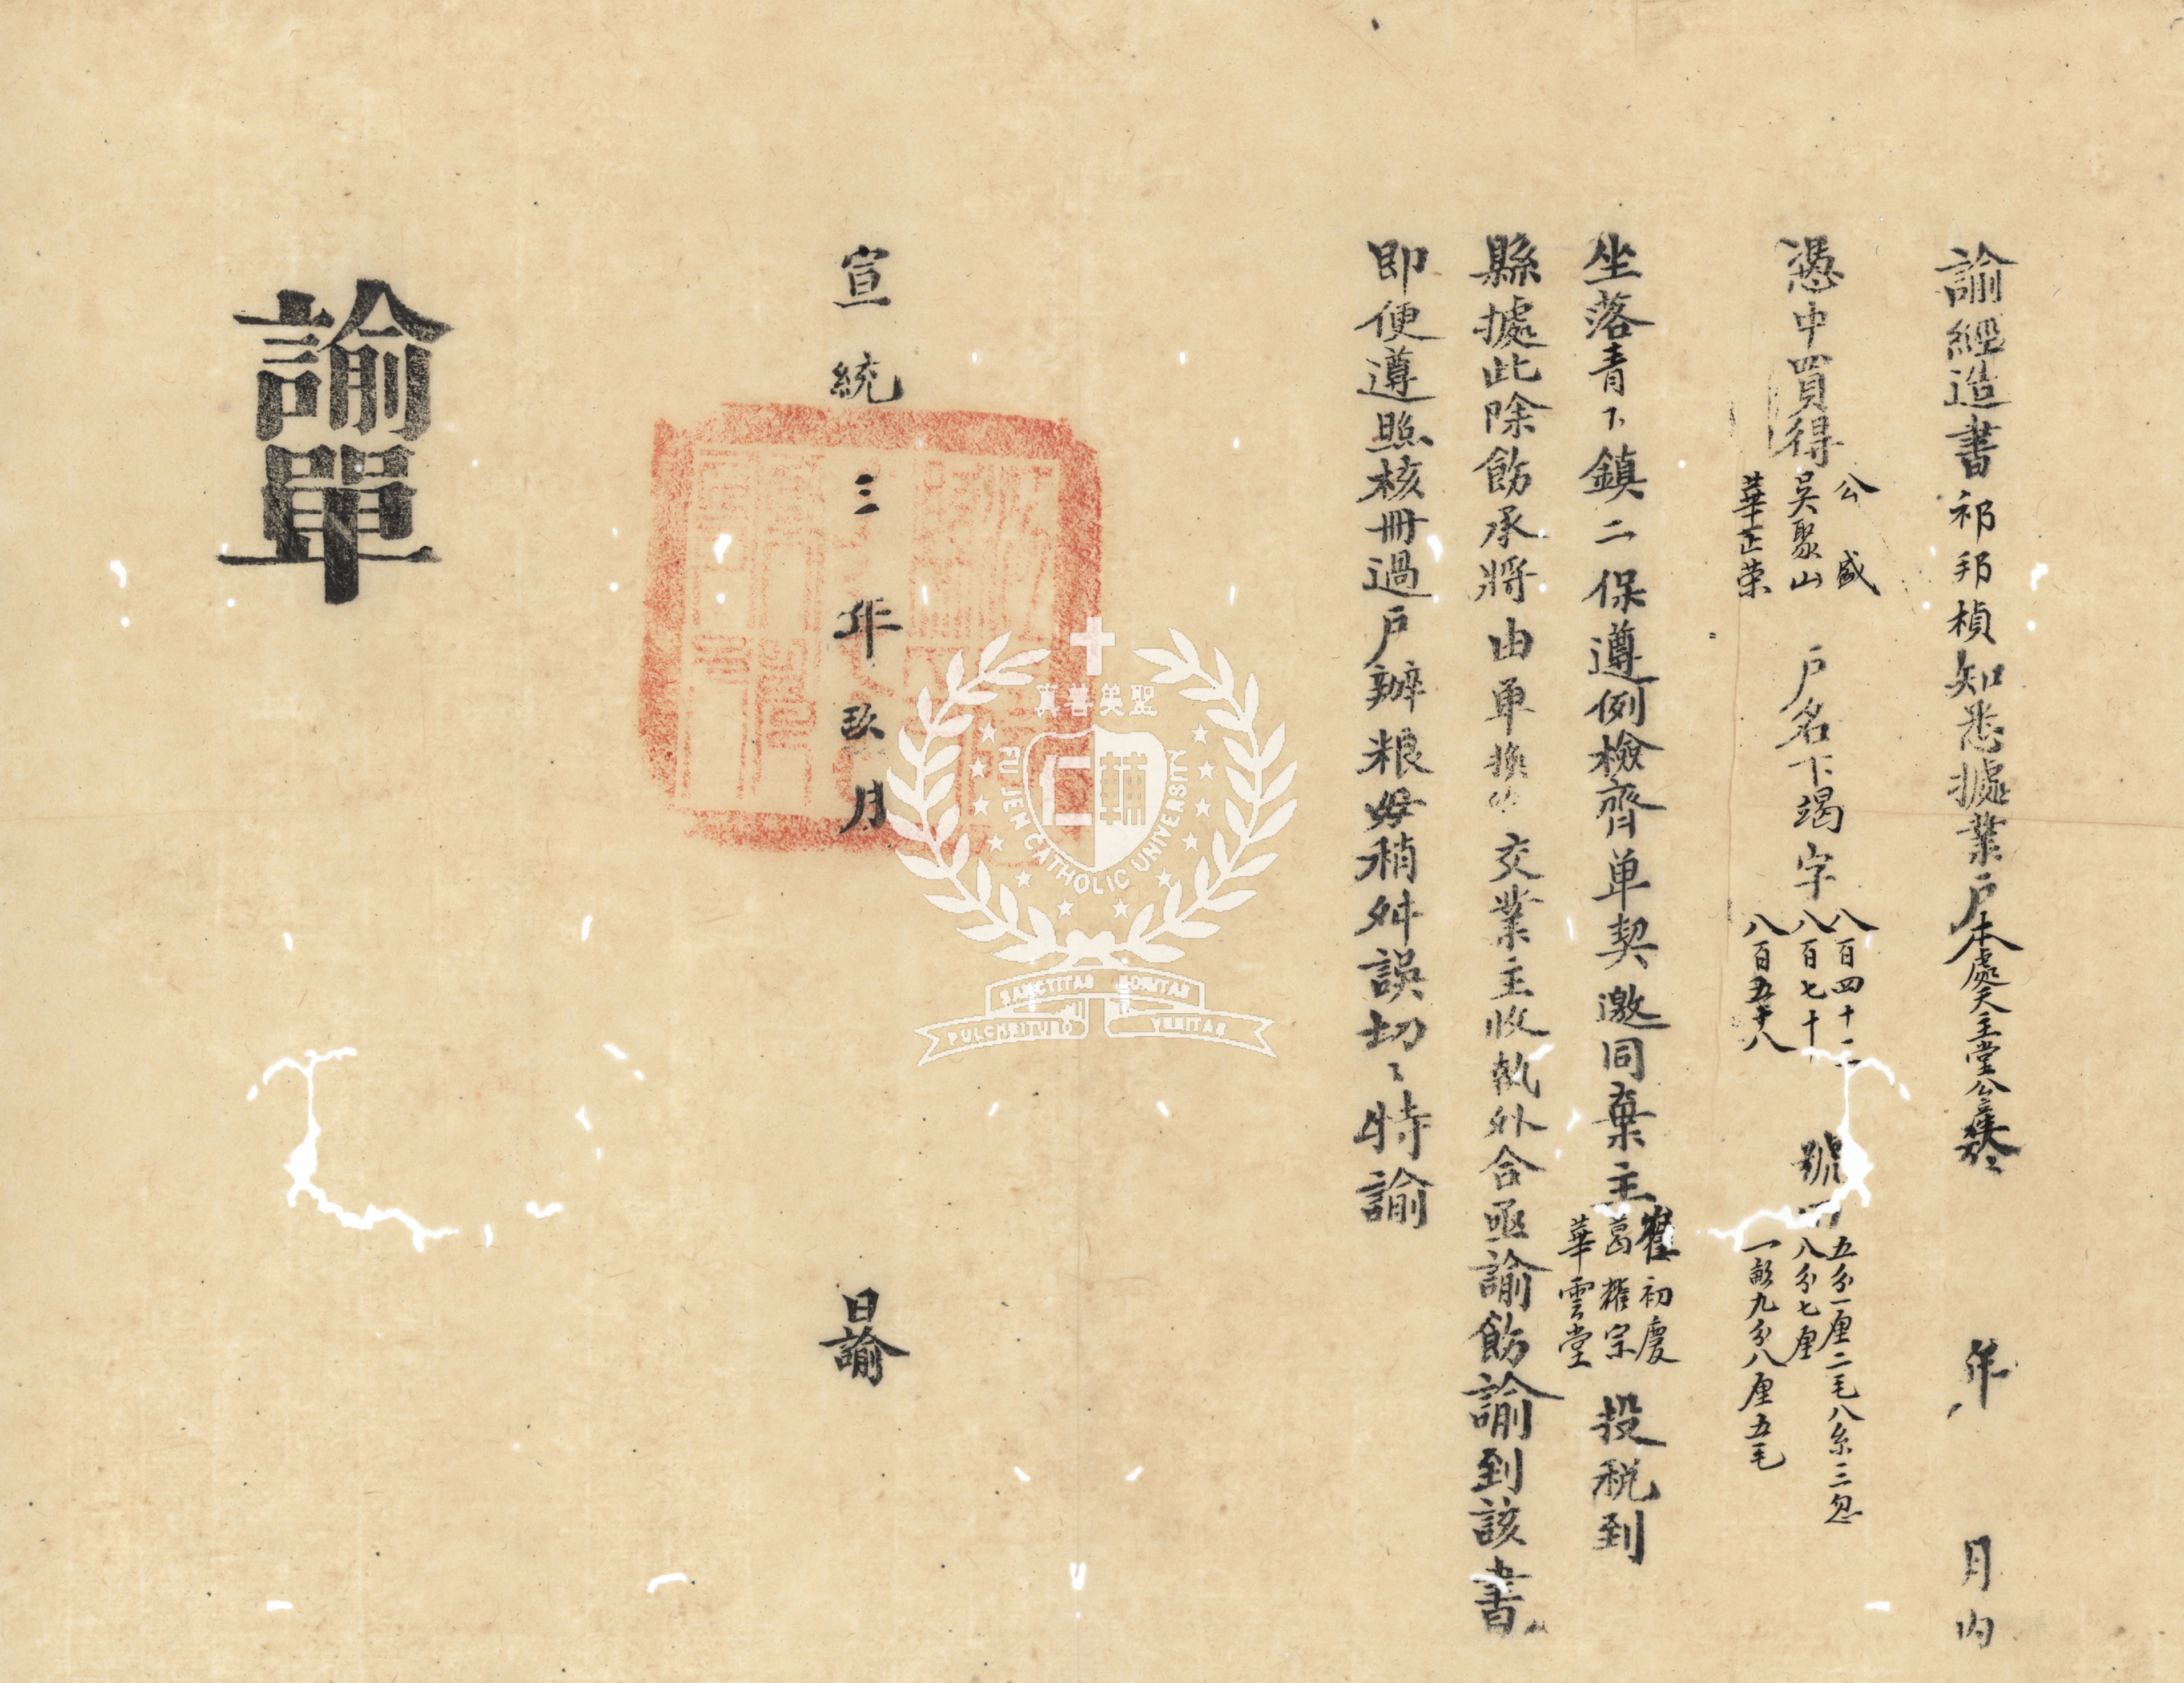 諭經造書祁邦楨知悉據業戶本處天主堂公產 年 月內
憑中買得
公盛
吳聚山
華正榮
戶名下竭字
八百四十二
八百七十
八百五十八
號
五分一厘二毛八糸三忽
八分七厘
一畝九分八厘五毛
坐落青下鎮二保遵例檢齊单契邀同棄主
崔初慶
葛耀宗
華雲堂
投税到
縣據此除飭承將由单換 交業主收執外合亟諭飭諭到該書
即便遵照核冊過戶辦粮毋稍舛誤切〻特諭
宣統三年玖月 日諭
諭單
真善美聖
FU JEN CATHOLIC UNIVERSITY
輔仁
SANCTITAS BONITAS
PULCHRITUDO VERITAS